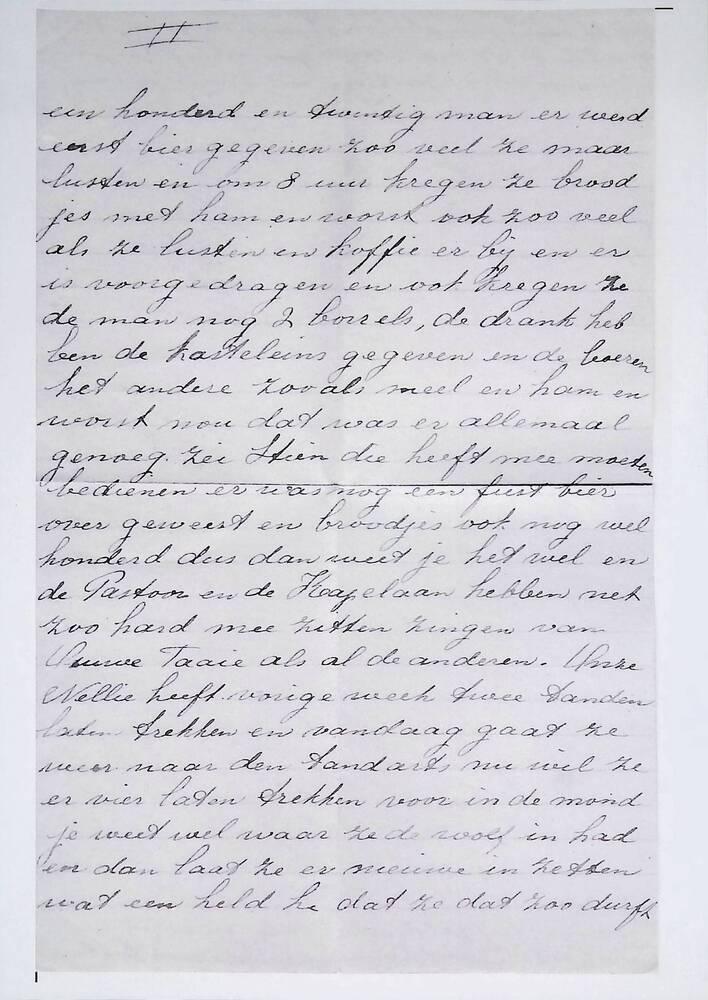 II
een honderd en twintig man er werd
eerst bier gegeven zoo veel ze maar
lusten en om 8 uur kregen ze brood
jes met ham en worst ook zoo veel
als ze lusten en koffie er bij en er
is voorgedragen en ook kregen ze
de man nog 2 borrels, de drank heb
ben de kasteleins gegeven en de boeren
het andere zooals meel en ham en
worst nou dat was er allemaal
genoeg. zei Stien die heeft mee moeten
bedienen er was nog een fust bier
over geweest en broodjes ook nog wel
honderd dus dan weet je het wel en
de Pastoor en de Kapelaan hebben net
zoo hard mee zitten zingen van
Taaie als al de anderen. Onze
Nellie heeft vorige week twee tanden
laten trekken en vandaag gaat ze
weer naar den tandarts nu wil ze
er vier laten trekken voor in de mond
je weet wel waar ze de wolf in had
en dan laat ze er nieuwe in zetten
wat een held he dat ze dat zoo durft